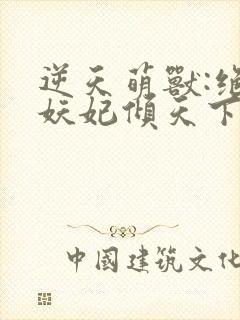 逆天萌獸:絕
妖妃傾天下
中國建筑文化